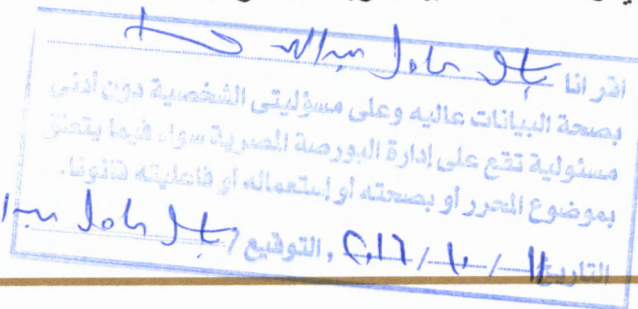 اقر انا
بصحة البيانات عاليه وعلى مسؤليتى الشخصية دون أدنى
مسئولية تقع على إدارة البورصة المصرية سواء فيما يتعلق
بموضوع المحرر أو بصحته أو إستعماله أو فاعليته قانونا.
التاريخ ١١ / ١٠ / ٢٠١٦ , التوقيع /